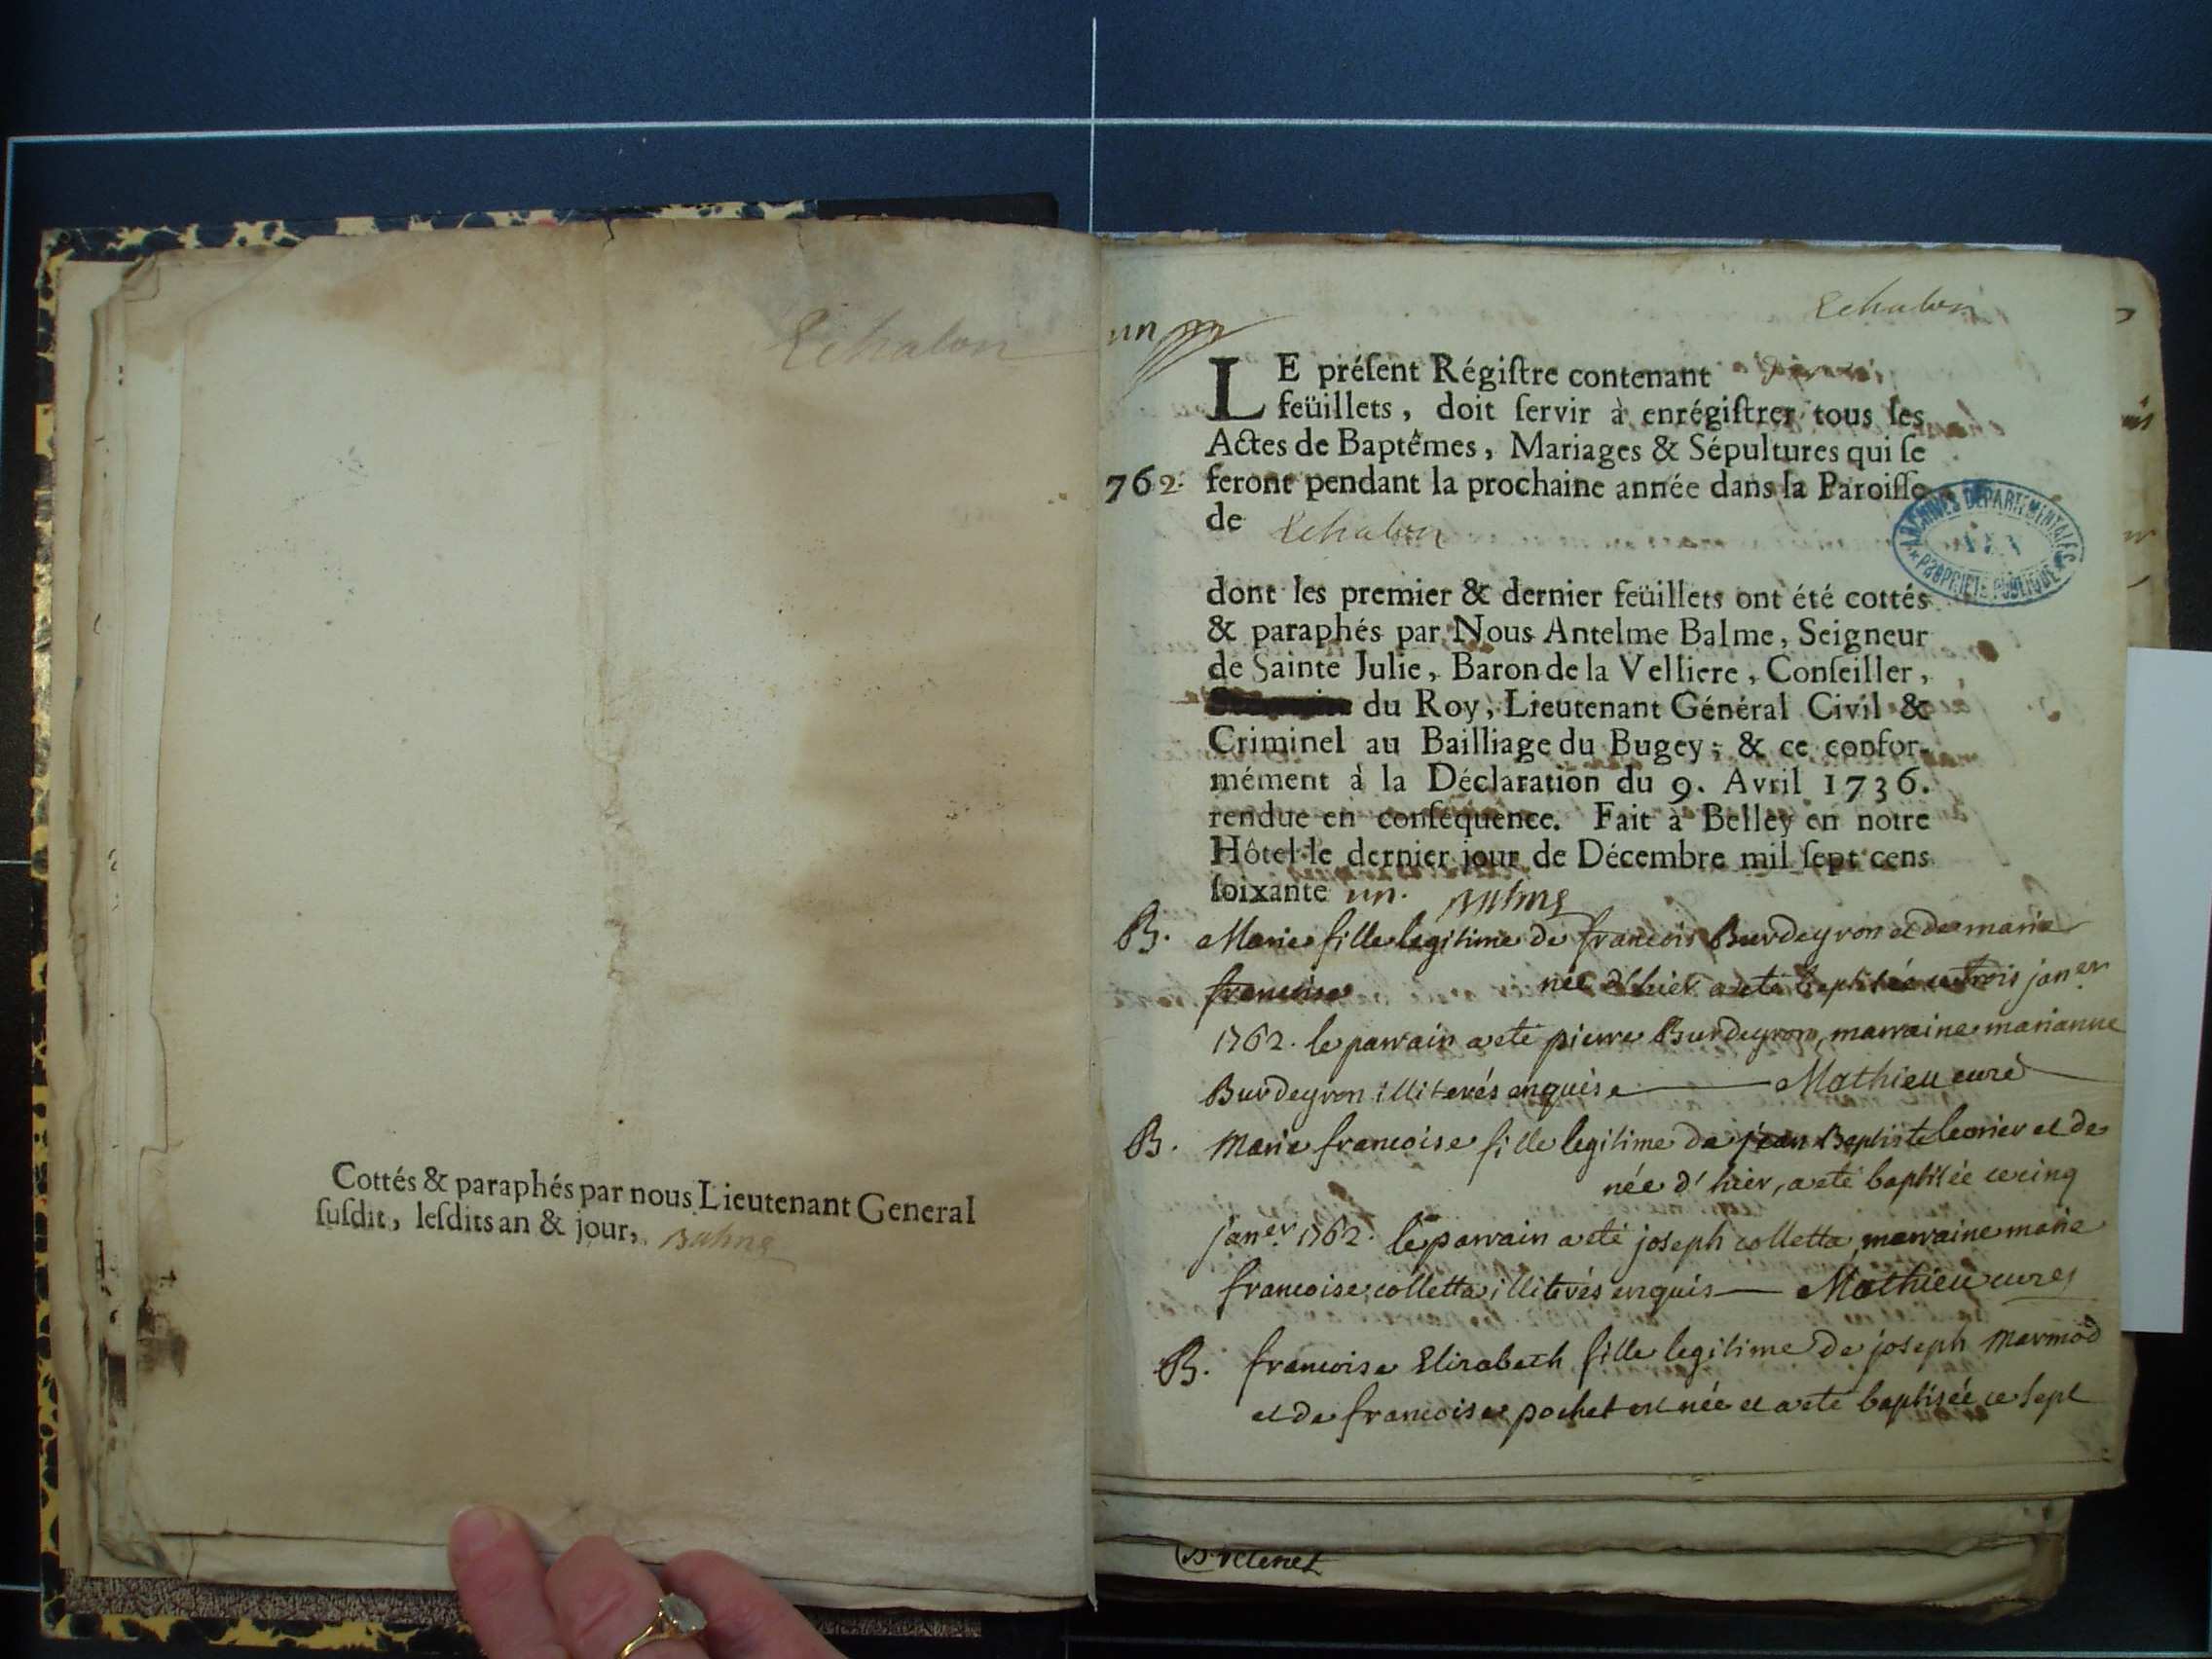 Echalon
Cottés & paraphés par nous Lieutenant General
ſuſdit, leſdits an & jour, Balme
Echalon
un
LE préſent Régiſtre contenant
feüillets, doit ſervir à enrégiſtrer tous les
Actes de Baptêmes, Mariages & Sépultures qui ſe
762. feront pendant la prochaine année dans la Paroiſſe
de Echalon
ARCHIVES DÉPARTEMENTALES
AIN
PROPRIÉTÉ PUBLIQUE
dont les premier & dernier feüillets ont été cottés
& paraphés par Nous Antelme Balme, Seigneur
de Sainte Julie, Baron de la Velliere, Conſeiller,
du Roy, Lieutenant Général Civil &
Criminel au Bailliage du Bugey; & ce confor-
mément à la Déclaration du 9. Avril 1736.
rendue en conſéquence. Fait à Belley en notre
Hôtel le dernier jour de Décembre mil ſept cens
ſoixante un. Balme
B. Marie fille legitime de francois Burdeyron et de marie
francoise née d'hier a eté baptisée ce trois janer
1762. le parrain a eté pierre Burdeyron, marraine marianne
Burdeyron illiterés enquise Mathieu curé
B. Marie francoise fille legitime de jean Baptiste et de
née d'hier, a eté baptisée ce cinq
janer 1762. le parrain a eté joseph colletta, marraine marie
francoise colletta illiterés enquis Mathieu curé
B. francoise Elizabeth fille legitime de joseph Marmod
et de francoise pochet est née et a eté baptisée ce sept